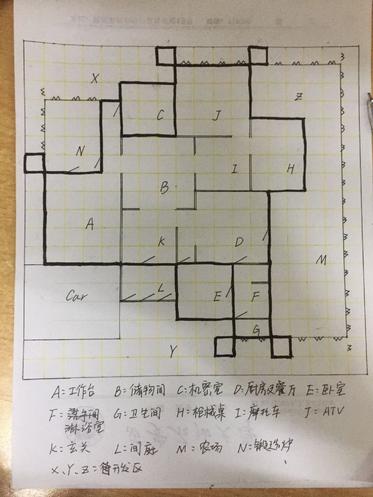 X
Z
C
J
N
I
H
B
A
K
D
M
Car
L
E
F
G
Y
A=工作台 B=储物间 C=机密室 D=厨房及餐厅 E=卧室
F= 淋浴室 G=卫生间 H=枪械桌 I=摩托车 J=ATV
K=玄关 L=间庭 M=农场 N=锻造炉
X、Y、Z=待开发区